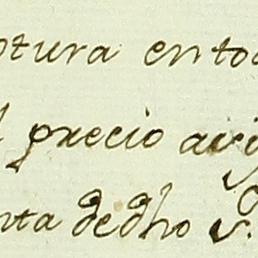 ptura ento
l precio a
nta de dho S.